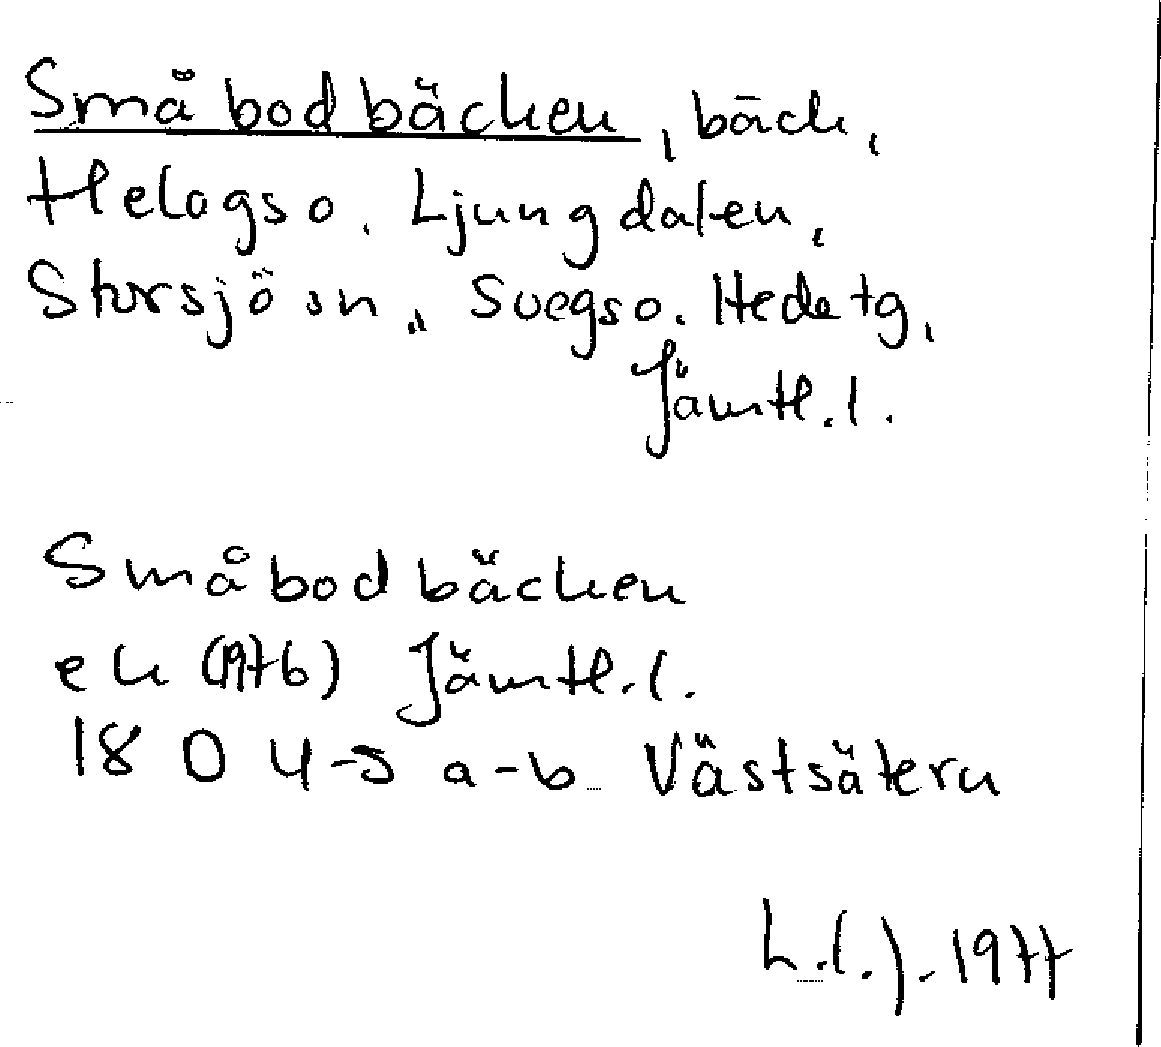 Småbodbäcken, bäck,
Helagso. Ljungdalen,
Storsjö sn, Svegso. Hede tg,
Jämtl. l.
Småbodbäcken
ek (1976) Jämtl. l.
18 D 4-5 a-b Västsätern
L. l. j. 1977